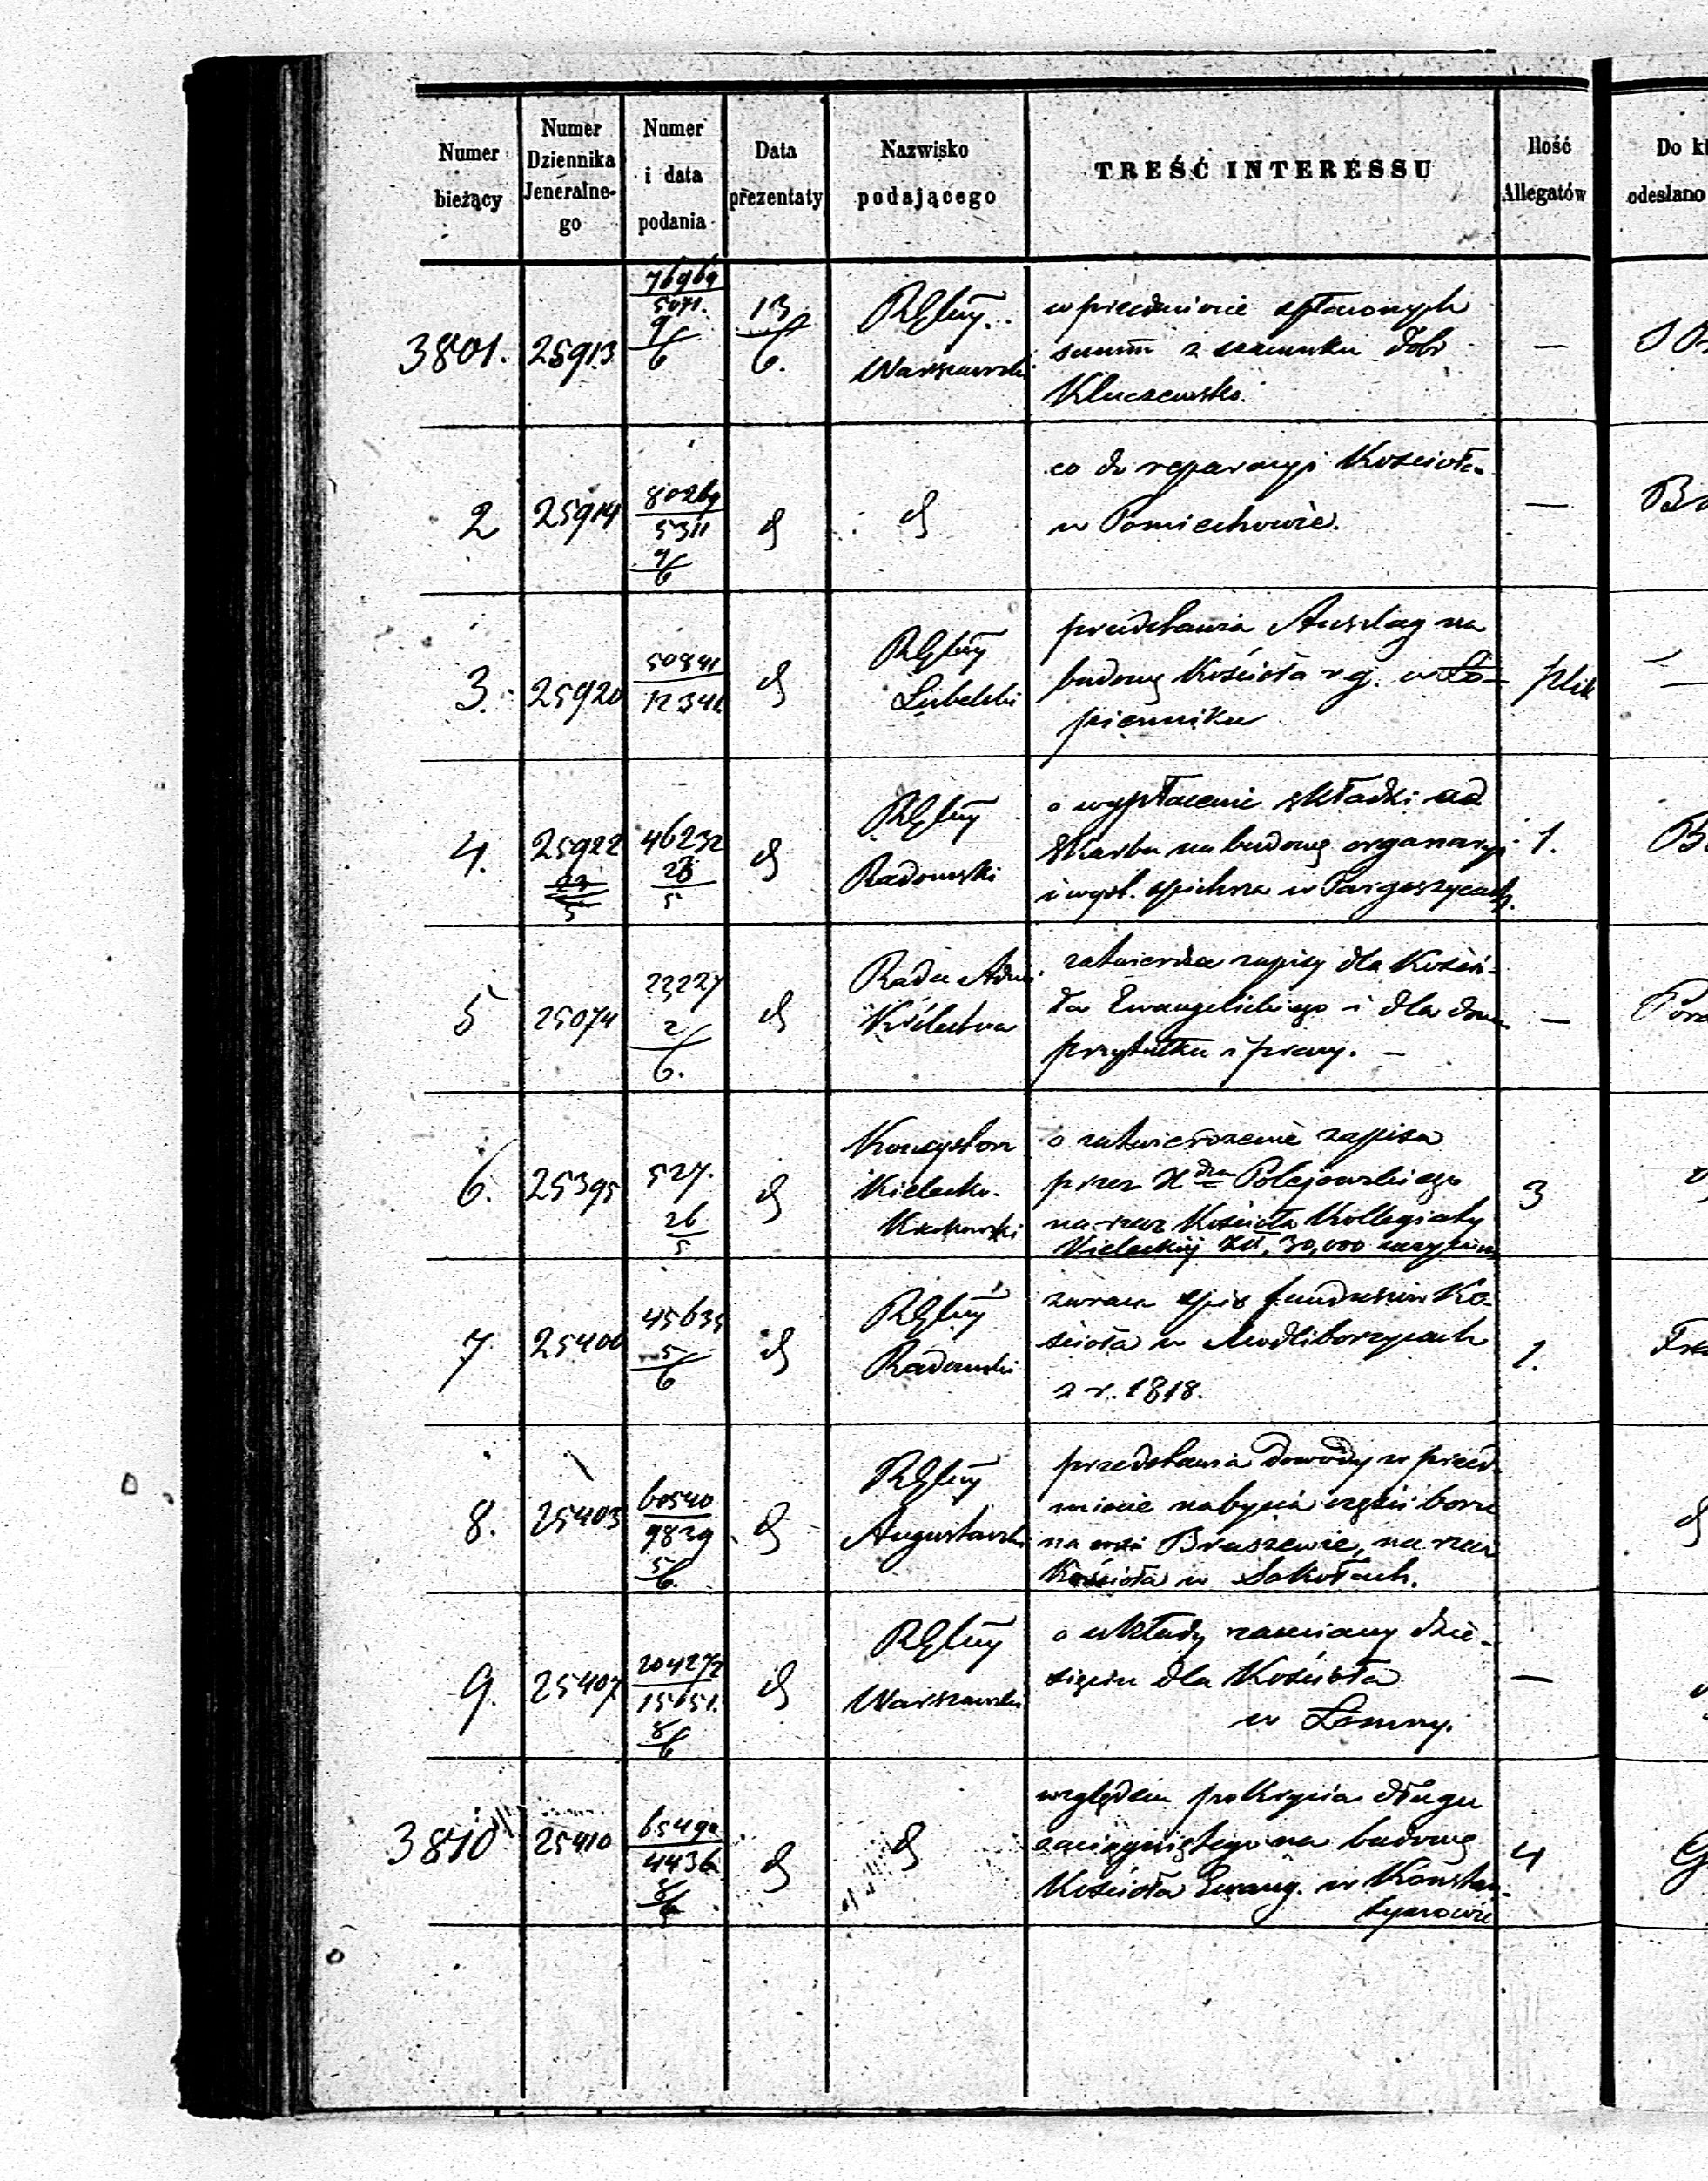 Numer bieżący
Numer Dziennika Jeneralne-go
Numer i data podania
Data prezentaty
Nazwisko podającego
TREŚĆ INTERESSU
Ilość Allegatów
Do
odesłano
3801. 25913 76969 5071. 9/6 13/6. Warszawski
w przedmiocie spłaconych
summ z szacunku dóbr —
Kluczewsko.
2 25914 80269 5311 9/6 d d
co do reparacyi Kościoła
w Pomiechowie. —
3. 25920 50841 12341 d Lubelski
przedstawia Anszlag na
budowę Kościoła r g. w Ło= plik
pienniku
4. 25922 46232 28/5 d Radomski
o wypłacenie składki od
Skarbu na budowę organaryi 1.
i wyst. spichrza w Targoszycach.
5 25074 22227 2/6. d Rada Adm Królestwa
zatwierdza zapisy dla Kośció-
ła Ewangelickiego i dla domu —
przytułku i pracy. —
6. 25395 527. 26/5 d Konsystorz Kielecko- Krakowski
o zatwierdzenie zapisu
przez X Polejowskiego 3
na rzecz Kościoła Kollegiaty
Kieleckiej 30,000
7 25400 45635 5/6 d Radomski
zwraca spis funduszów Ko-
ścioła w Modliborzycach 1.
z r. 1818.
8. 25403 60540 9839 5/6. d Augustowski
przedstawia dowody w przed-
miocie nabycia części boru
na wsi Bruszewie, na rzecz
Kościoła w Sokołach.
9. 25407 204272 15051. 8/6 d Warszawski
o układy zamiany dzie-
sięcin dla Kościoła —
w Łomny.
3810 25410 65492 4436 8/6 d d
względem pokrycia długu
zaciągniętego na budowę 4
Kościoła Ewang. w Konstan-
tynowie